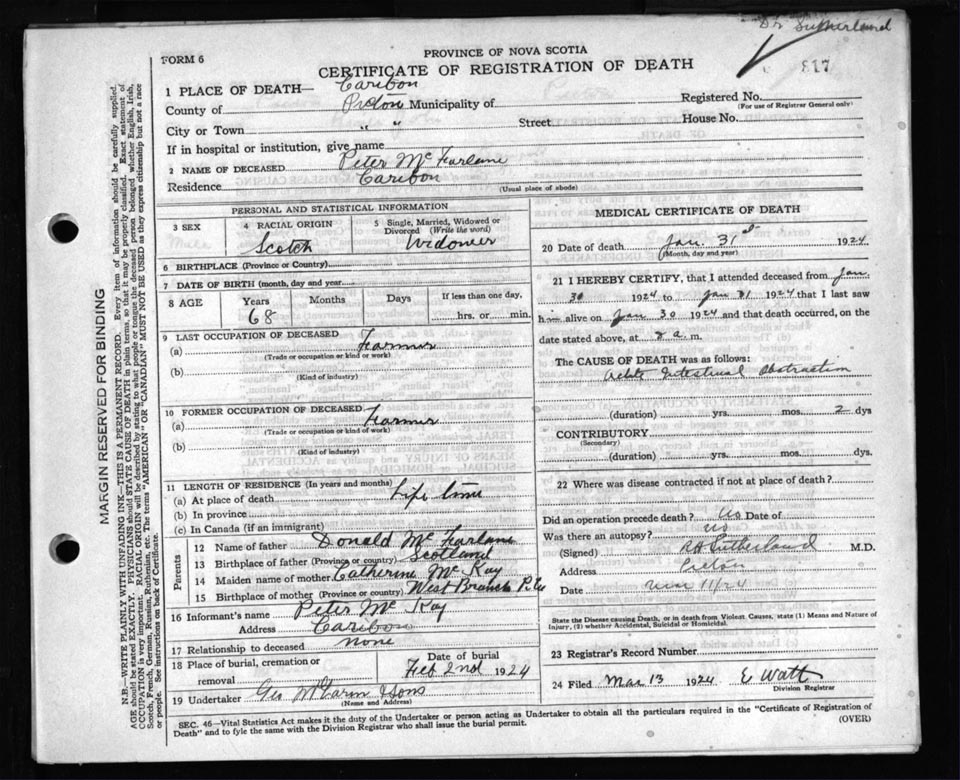 Dr Sutherland
PROVINCE OF NOVA SCOTIA
FORM 6
CERTIFICATE OF REGISTRATION OF DEATH
817
1 PLACE OF DEATH— Caribou
County of Pictou Municipality of Registered No.
(For use of Registrar General only)
City or Town " " Street House No.
If in hospital or institution, give name
2 NAME OF DECEASED Peter McFarlane
Residence Caribou
(Usual place of abode)
PERSONAL AND STATISTICAL INFORMATION
3 SEX 4 RACIAL ORIGIN 5 Single, Married, Widowed or Divorced (Write the word)
Scotch Widower
6 BIRTHPLACE (Province or Country)
7 DATE OF BIRTH (month, day and year)
8 AGE Years Months Days If less than one day,
68 hrs. or min.
9 LAST OCCUPATION OF DECEASED
(a) Farmer
(Trade or occupation or kind or work)
(b)
(Kind of industry)
10 FORMER OCCUPATION OF DECEASED
(a) Farmer
(Trade or occupation or kind of work)
(b)
(Kind of industry)
11 LENGTH OF RESIDENCE (In years and months)
(a) At place of death Life time
(b) In province
(c) In Canada (if an immigrant)
Parents
12 Name of father Donald McFarlane
13 Birthplace of father (Province or country) Scotland
14 Maiden name of mother Catherine McKay
15 Birthplace of mother (Province or country) West Branch
16 Informant's name Peter McKay
Address Caribou
17 Relationship to deceased none
18 Place of burial, cremation or removal Date of burial
Feb 2nd 1924
19 Undertaker Geo & Sons
(Name and Address)
MEDICAL CERTIFICATE OF DEATH
20 Date of death Jan. 31st 1924
(Month, day and year)
21 I HEREBY CERTIFY, that I attended deceased from Jan
30 1924 to Jan 31 1924 that I last saw
him alive on Jan 30 1924 and that death occurred, on the
date stated above, at 2 a. m.
The CAUSE OF DEATH was as follows:
Acute Intestinal Obstruction
(duration) yrs. mos. 2 dys
CONTRIBUTORY
(Secondary)
(duration) yrs. mos. dys.
22 Where was disease contracted if not at place of death?
Did an operation precede death? no Date of
Was there an autopsy? no
(Signed) Sutherland M.D.
Address Pictou
Date Mar 11/24
State the Disease causing Death, or in death from Violent Causes, state (1) Means and Nature of
Injury, (2) whether Accidental, Suicidal or Homicidal.
23 Registrar's Record Number
24 Filed Mar 13 1924 E Watt
Division Registrar
SEC. 46—Vital Statistics Act makes it the duty of the Undertaker or person acting as Undertaker to obtain all the particulars required in the "Certificate of Registration of
Death" and to fyle the same with the Division Registrar who shall issue the burial permit.
(OVER)
MARGIN RESERVED FOR BINDING
N.B.—WRITE PLAINLY WITH UNFADING INK—THIS IS A PERMANENT RECORD. Every item of information should be carefully supplied.
AGE should be stated EXACTLY. PHYSICIANS should STATE CAUSE OF DEATH in plain terms, so that it may be properly classified. Exact statement of
OCCUPATION is very important. RACIAL ORIGIN will be described by stating to what people or tongue the deceased person belonged whether English, Irish,
Scotch, French, German, Russian, Ruthenian, etc. The terms "AMERICAN" OR "CANADIAN" MUST NOT BE USED as they express citizenship but not a race
or people. See instructions on back of Certificate.